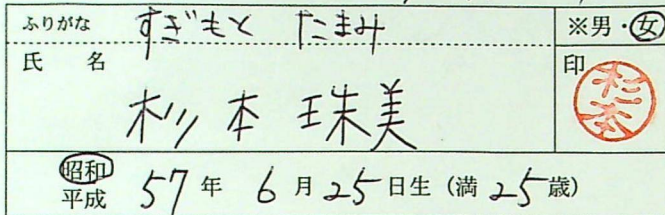 ふりがな すぎもと たまみ ※男・女
氏 名 杉本 珠美 印 杉本
昭和
平成 57年 6月25日生 (満 25歳)